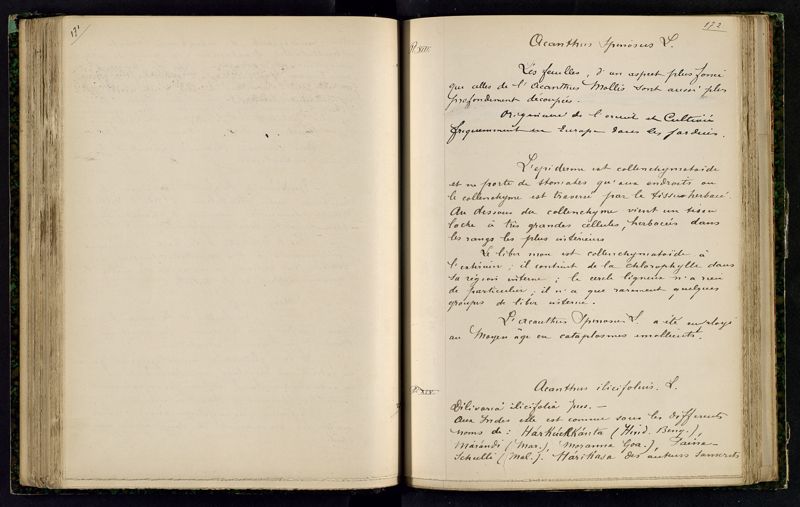 171
172
Acanthus Spinosus L.
Les feuilles, d'un aspect plus foncé
que celles de l'Acanthus Mollis sont aussi plus
profondement découpées.
Originaire de l'orient et Cultivée
fréquemment en Europe dans les jardins.
L'epiderme est collenchymatoïde
et ne porte de stomates qu'aux endroits ou
le collenchyme est traversé par le tissu herbacé.
Au dessous du collenchyme vient un tissu
lache à très grandes cellules, herbacées dans
les rangs les plus intérieurs
Le liber mou est collenchymatoïde à
l'extérieur; il contient de la chlorophylle dans
sa région interne; le cercle ligneux n'a rien
de particulier; il n'a que rarement quelques
groupes de liber interne.
L'Acanthus Spinosus L. a été employé
au Moyen âge en cataplasmes emollients.
Acanthus ilicifolius. L.
Dilivaria ilicifolia Juss. —
Aux Indes elle est connue sous les differents
noms de: Harkuchkánta (Hind. Beng.),
Márándi (Mar.), Moranna (Goa.), Paina-
Schulli (Mal.). Hárikasa des auteurs sanscrits